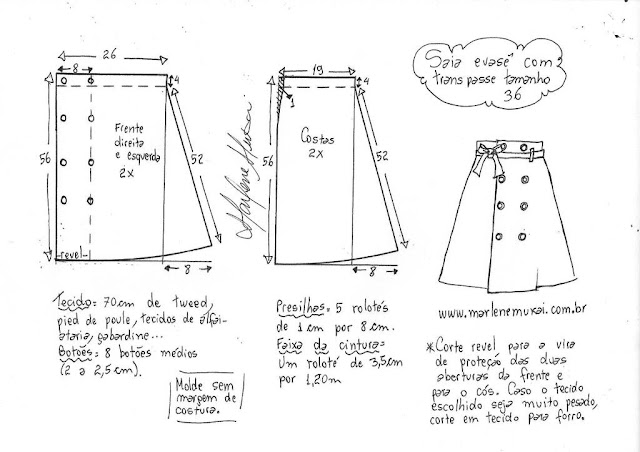 26
8
4
Frente
direita
e esquerda
2x
56
52
revel
8
Marlene Mukai
19
1
Costas
2x
56
52
8
Saia evasê com
transpasse tamanho
36
www.marlenemukai.com.br
Tecido: 70cm de tweed,
pied de poule, tecidos de alfai-
ataria, gabardine...
Botões: 8 botões médios
(2 a 2,5cm).
Molde sem
margem de
costura.
Presilhas: 5 rolotés
de 1cm por 8cm.
Faixa da cintura:
Um roloté de 3,5cm
por 1,20m
*Corte revel para a vira
de proteção das duas
aberturas da frente e
para o cós. Caso o tecido
escolhido seja muito pesado,
corte em tecido para forro.